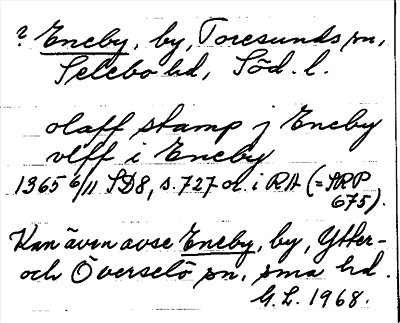 ? Eneby, by, Toresunds sn,
Selebo hd, Söd. l.
olaff stamp j Eneby
vlff i Eneby
1365 6/11 SD8, s. 727 or. i RA (= SRP
675).
Kan även avse Eneby, by, Ytter-
och Överselö sn, sma hd.
G.L. 1968.